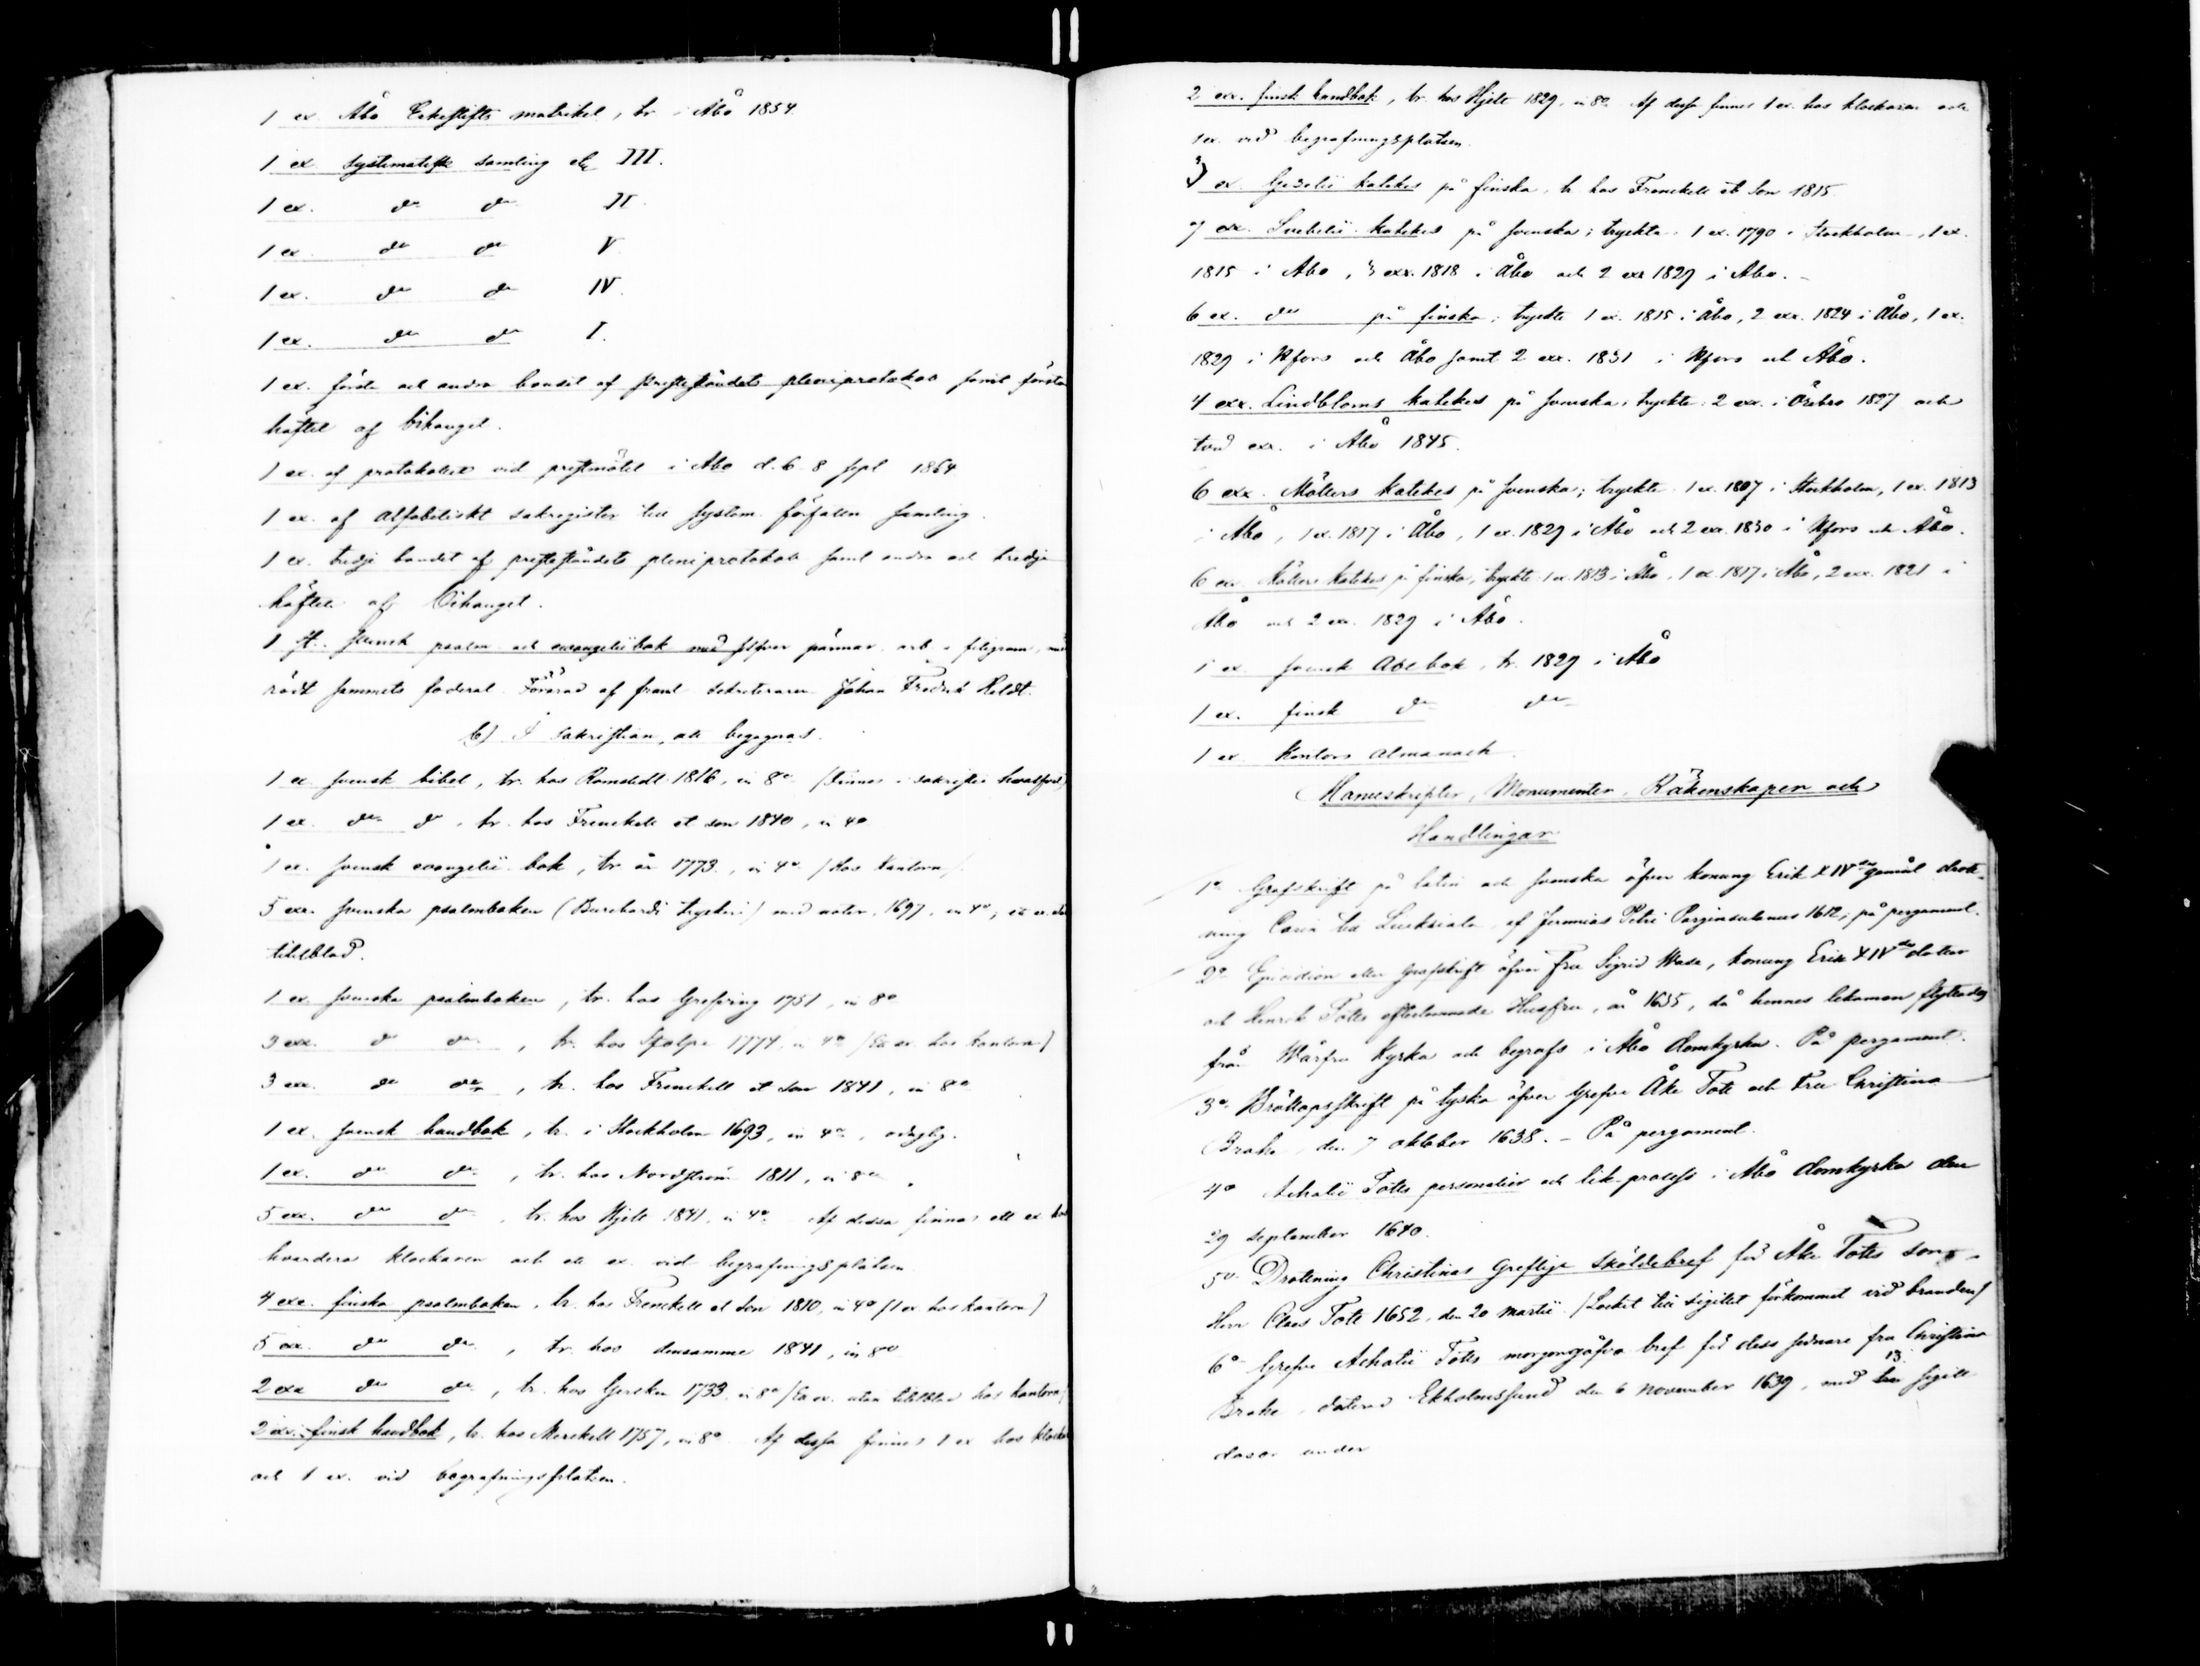 1 ex. Åbo Erkestifts matrikel, tr. i Åbo 1854.
1 ex. systematisk samling etc III.
1 ex. do do II.
1 ex. do do V.
1 ex. do do IV.
1 ex. do do I.
1 ex. första och andra bandet af presteståndets pleniprotokoll samt första
häftet af bihanget.
1 ex. af protokollet vid prestmötet i Åbo d. 6-8 sept 1864
1 ex. af alfabetiskt sakregister till system. författn samling.
1 ex. tredje bandet af presteståndets pleniprotokoll samt andra och tredje
häftet af bihanget.
1 st. svensk psalm och evangeliibok med silfver pärmar, arb. i filigram, med
rödt sammets foderal. Förärad af framl. sekreteraren Johan Fredrik Heldt.
b) I sakristian, att begagnas.
1 ex. svensk bibel, tr. hos Ramstedt 1816, in 8o
1 ex. do do, tr. hos Frenckell et son 1840, in 4o
1 ex. svensk evangelii bok, tr. år 1773, in 4o (hos Kantorn)
5 exx. svenska psalmboken (Burchardi tryckeri) med noter, 1697, in 4o,
titelblad.
1 ex. svenska psalmboken, tr. hos Grefving 1751, in 8o
3 exx. do do, tr. hos Stolpe 1774, in 4o (Ett ex. hos Kantorn)
3 exx. do do, tr. hos Frenckell et son 1841, in 8o
1 ex. svensk handbok, tr. i Stockholm 1693, in 4o, oduglig.
1 ex. do do, tr. hos Nordström 1811, in 8o.
5 exx. do do, tr. hos Hjelt 1841, in 4o. Af dessa finnas ett ex. hos
hvardera klockaren och ett ex. vid begrafningsplatsen.
4 exx. finska psalmboken, tr. hos Frenckell et Son 1810, in 4o (1 ex hos Kantorn)
5 exx. do do, tr. hos densamme 1841, in 8o
2 exx. do do, tr. hos 1733 in 8o (Ett ex. utan titelblad hos kantorn)
2 exx. finsk handbok, tr. hos Merckell 1757, in 8o. Af dessa finnes 1 ex hos klockarn
och 1 ex. vid begrafningsplatsen.
2 exx. finsk handbok, tr. hos Hjelt 1829, in 8o. Af dessa finnes 1 ex. hos klockaren och
1 ex. vid begrafningsplatsen.
3) ex. Gezelii katekes på finska, tr. hos Frenckell et Son 1815.
7 exx. Svebelii katekes på svenska; tryckta 1 ex. 1790 i Stockholm, 1 ex.
1815 i Åbo, 3 exx. 1818 i Åbo och 2 exx 1829 i Åbo.
6 ex. do på finska; tryckta 1 ex. 1815 i Åbo, 2 exx. 1824 i Åbo, 1 ex.
1829 i Hfors och Åbo samt 2 exx. 1831 i Hfors och Åbo.
4 exx. Lindbloms katekes på svenska; tryckta 2 exx. i Örebro 1827 och
två exx. i Åbo 1845.
6 exx. Möllers katekes på svenska; tryckta 1 ex. 1807 i Stockholm, 1 ex. 1813
i Åbo, 1 ex. 1817 i Åbo, 1 ex. 1829 i Åbo och 2 exx. 1830 i Hfors och Åbo.
6 exx. Möllers katekes på finska, tryckta 1 ex. 1813 i Åbo, 1 ex. 1817 i Åbo, 2 exx. 1821 i
Åbo och 2 exx. 1829 i Åbo.
1 ex. svensk Abcbok, tr. 1829 i Åbo
1 ex. finsk do do
1 ex. Kontors almanach.
Manuskripter, Monumenter, Räkenskaper och
Handlingar
1o Grafskrift på latin och svenska öfver konung Erik XIVdes gemål drott-
ning Carin till Liuksiala, af Jeremias Petri 1612, på pergament.
2o eller grafskrift öfver Fru Sigrid Wasa, konung Erik XIVdes dotter
och Henrik Totts efterlemnade Husfru, år 1635, då hennes lekamen flyttades
från Wårfru Kyrka och begrofs i Åbo domkyrka. På pergament.
3o Bröllopsskrift på tyska öfver Grefve Åke Tott och Fru Christina
Brahe, den 7 oktober 1638. - På pergament.
4o Achatii Totts personalier och lik-process i Åbo domkyrka den
29 september 1640.
5o Drottning Christinas Greflige sköldebref för Åke Totts son,
Herr Claes Tott 1652, den 20 martii. (Locket till sigillet förkommet vid branden)
6o Grefve Achatii Totts morgongåfvo bref för dess sednare fru Christina
Brahe, dateradt Ekholmssund den 6 november 1639, med 13 sigill
dosor under